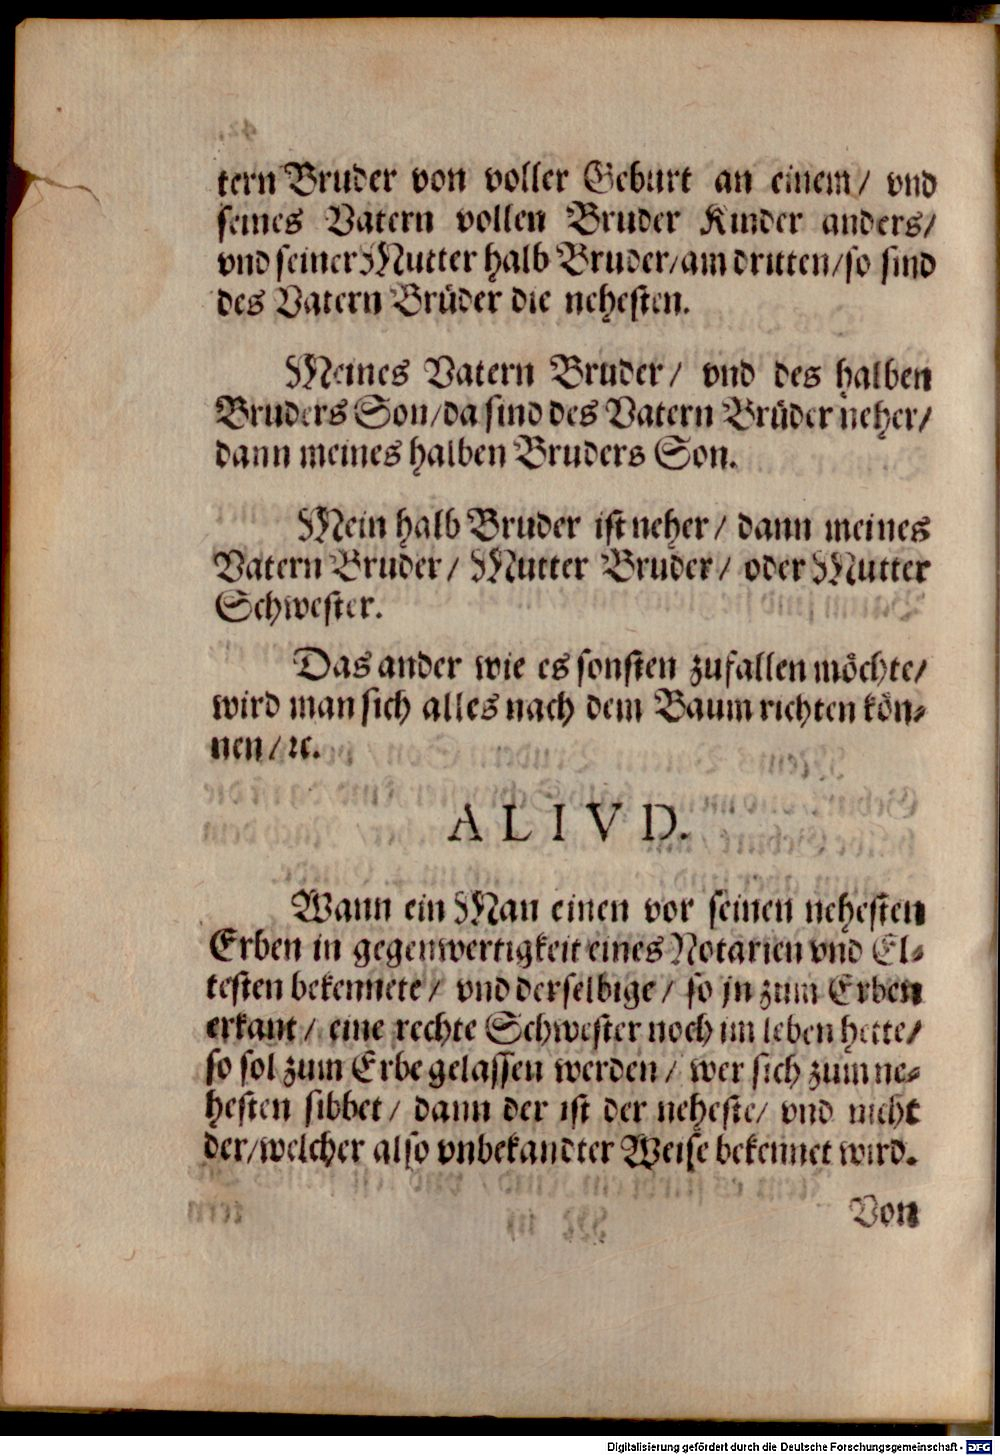 tern Bruder von voller Geburt an einem/ vnd
seines Vatern vollen Bruder Kinder anders/
vnd seiner Mutter halb Bruder/am dritten/so sind
des Vatern Brüder die nehesten.
Meines Vatern Bruder/ vnd des halben
Bruders Son/da sind des Vatern Brüder neher/
dann meines halben Bruders Son.
Mein halb Bruder ist neher/ dann meines
Vatern Bruder/ Mutter Bruder/ oder Mutter
Schwester.
Das ander wie es sonsten zufallen möchte/
wird man sich alles nach dem Baum richten kön-
nen/ ꝛc.
ALIVD.
Wann ein Man einen vor seinen nehesten
Erben in gegenwertigkeit eines Notarien vnd El-
testen bekennete/ vnd derselbige/ so jn zum Erben
erkant/ eine rechte Schwester noch im leben hette/
so sol zum Erbe gelassen werden/ wer sich zum ne-
hesten sibbet/ dann der ist der neheste/ vnd nicht
der/welcher also vnbekandter Weise bekennet wird.
Von
Digitalisierung gefördert durch die Deutsche Forschungsgemeinschaft - DFG